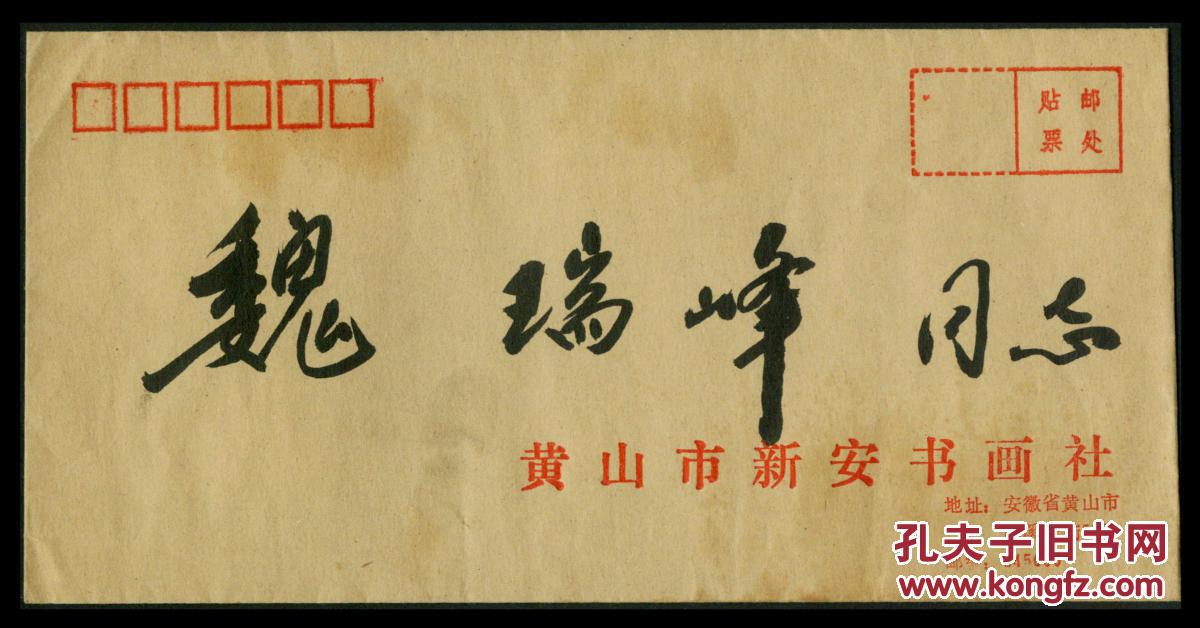 邮
贴
处
票
魏瑞峰同志
黄山市新安书画社
地址：安徽省黄山市
孔夫子旧书网
www.kongfz.com